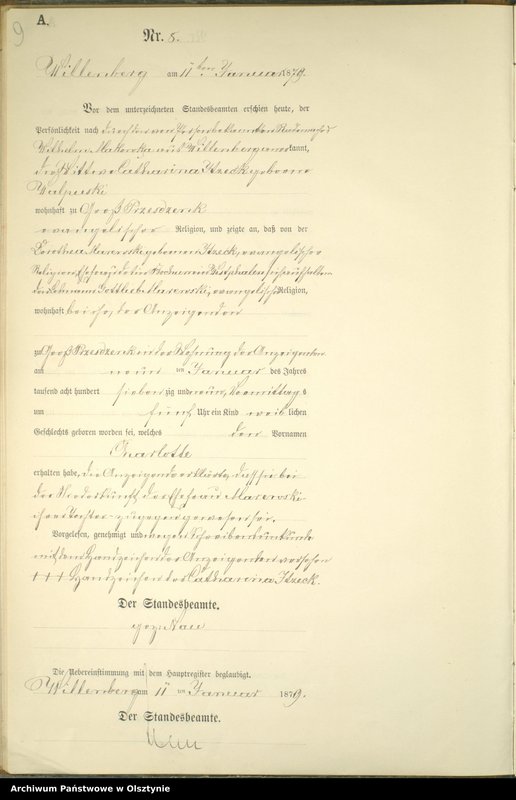 9
A.
Nr. 8.
Willenberg am 11ten Januar 1879.
Vor dem unterzeichneten Standesbeamten erschien heute, der
Persönlichkeit nach durch den von Person bekannten
Wilhelm Makonka aus Willenberg anerkannt,
die Wittwe Catharina Itzeck geborene
wohnhaft zu Groß Przesdzienk
evangelischer Religion, und zeigte an, daß von der
Dorothea Marewski geborenen Itzeck, evangelischer
Religion, Ehefrau des in Westphalen sich aufhaltenden
Gottlieb Marewski, evangelischer Religion,
wohnhaft bei ihr, der Anzeigenden
zu Groß Przesdzienk in der Wohnung der Anzeigenden
am neun ten Januar des Jahres
tausend acht hundert siebenzig und neun, Vormittags
um fünf Uhr ein Kind weiblichen
Geschlechts geboren worden sei, welches den Vornamen
Charlotte
erhalten habe, die Anzeigende erklärte, daß sie bei
der Niederkunft der Ehefrau Marewski
ihrer Tochter zugegen gewesen sei.
Vorgelesen, genehmigt und wegen Schreibensunkunde
mit dem Handzeichen der Anzeigenden versehen
+++ Handzeichen der Catharina Itzeck.
Der Standesbeamte.
gez. Nau
Die Uebereinstimmung mit dem Hauptregister beglaubigt.
Willenberg am 11 ten Januar 1879.
Der Standesbeamte.
Nau
Archiwum Państwowe w Olsztynie